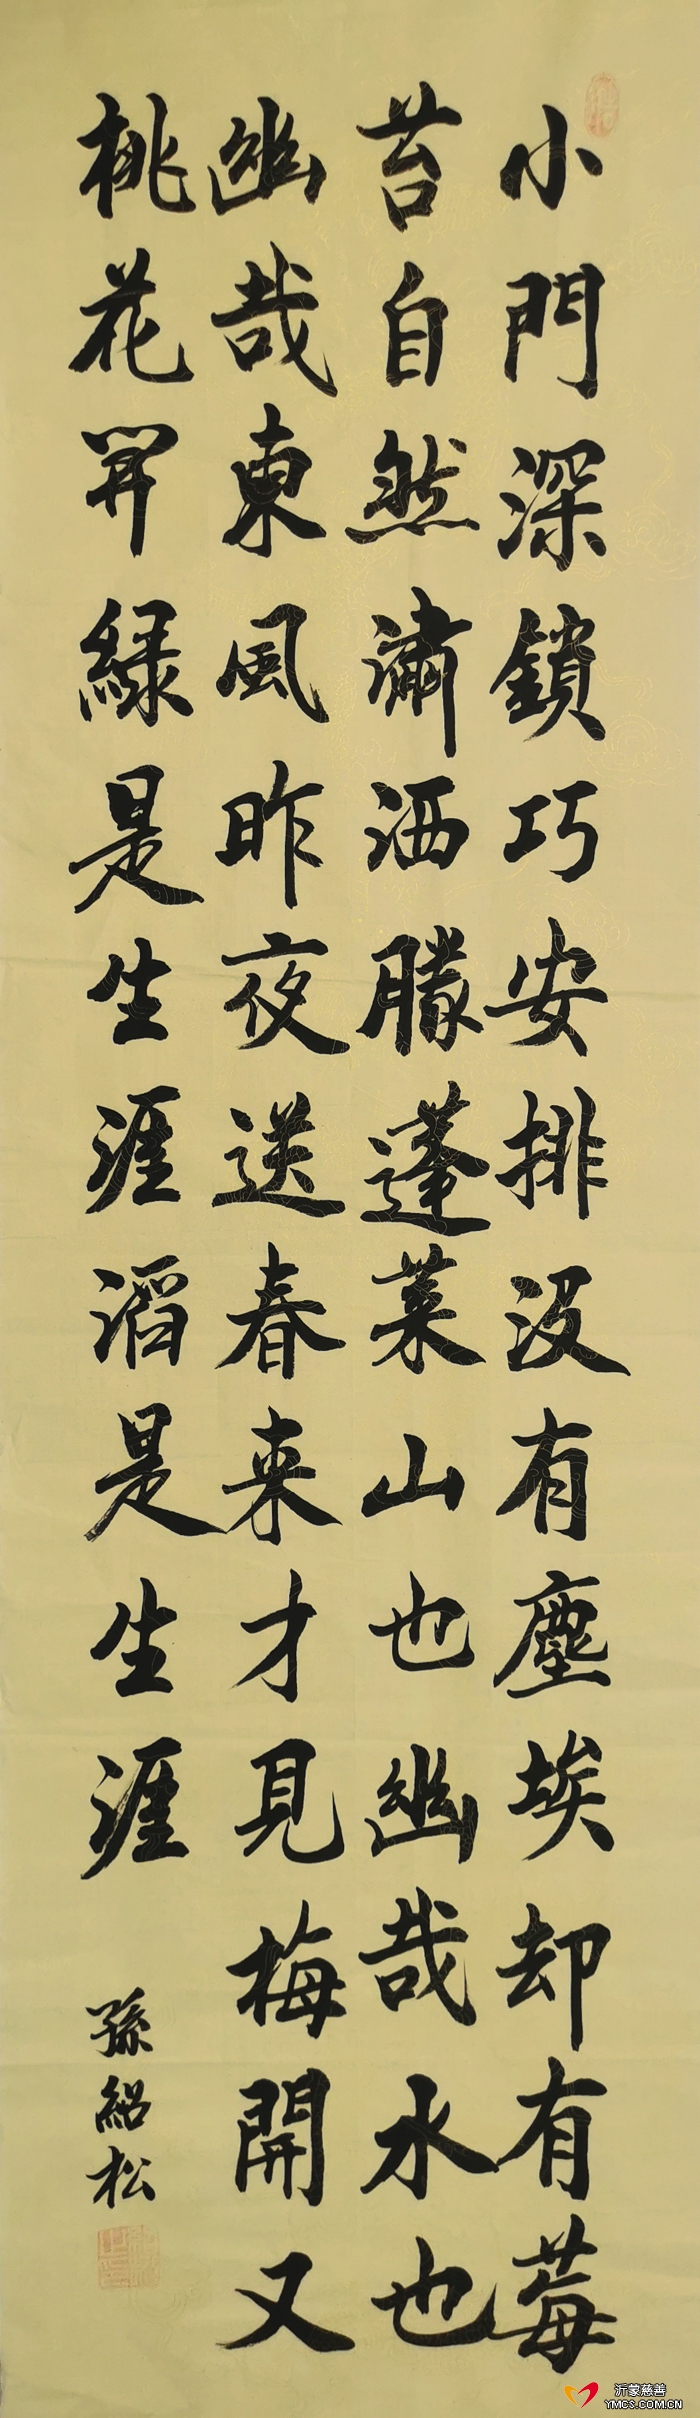 小門深鎖巧安排没有塵埃却有莓
苔自然瀟洒朦蓬萊山也幽哉水也
幽哉東風昨夜送春来才見梅開又
桃花開緑是生涯滔是生涯
孫紹松
沂蒙慈善
YMCS.COM.CN